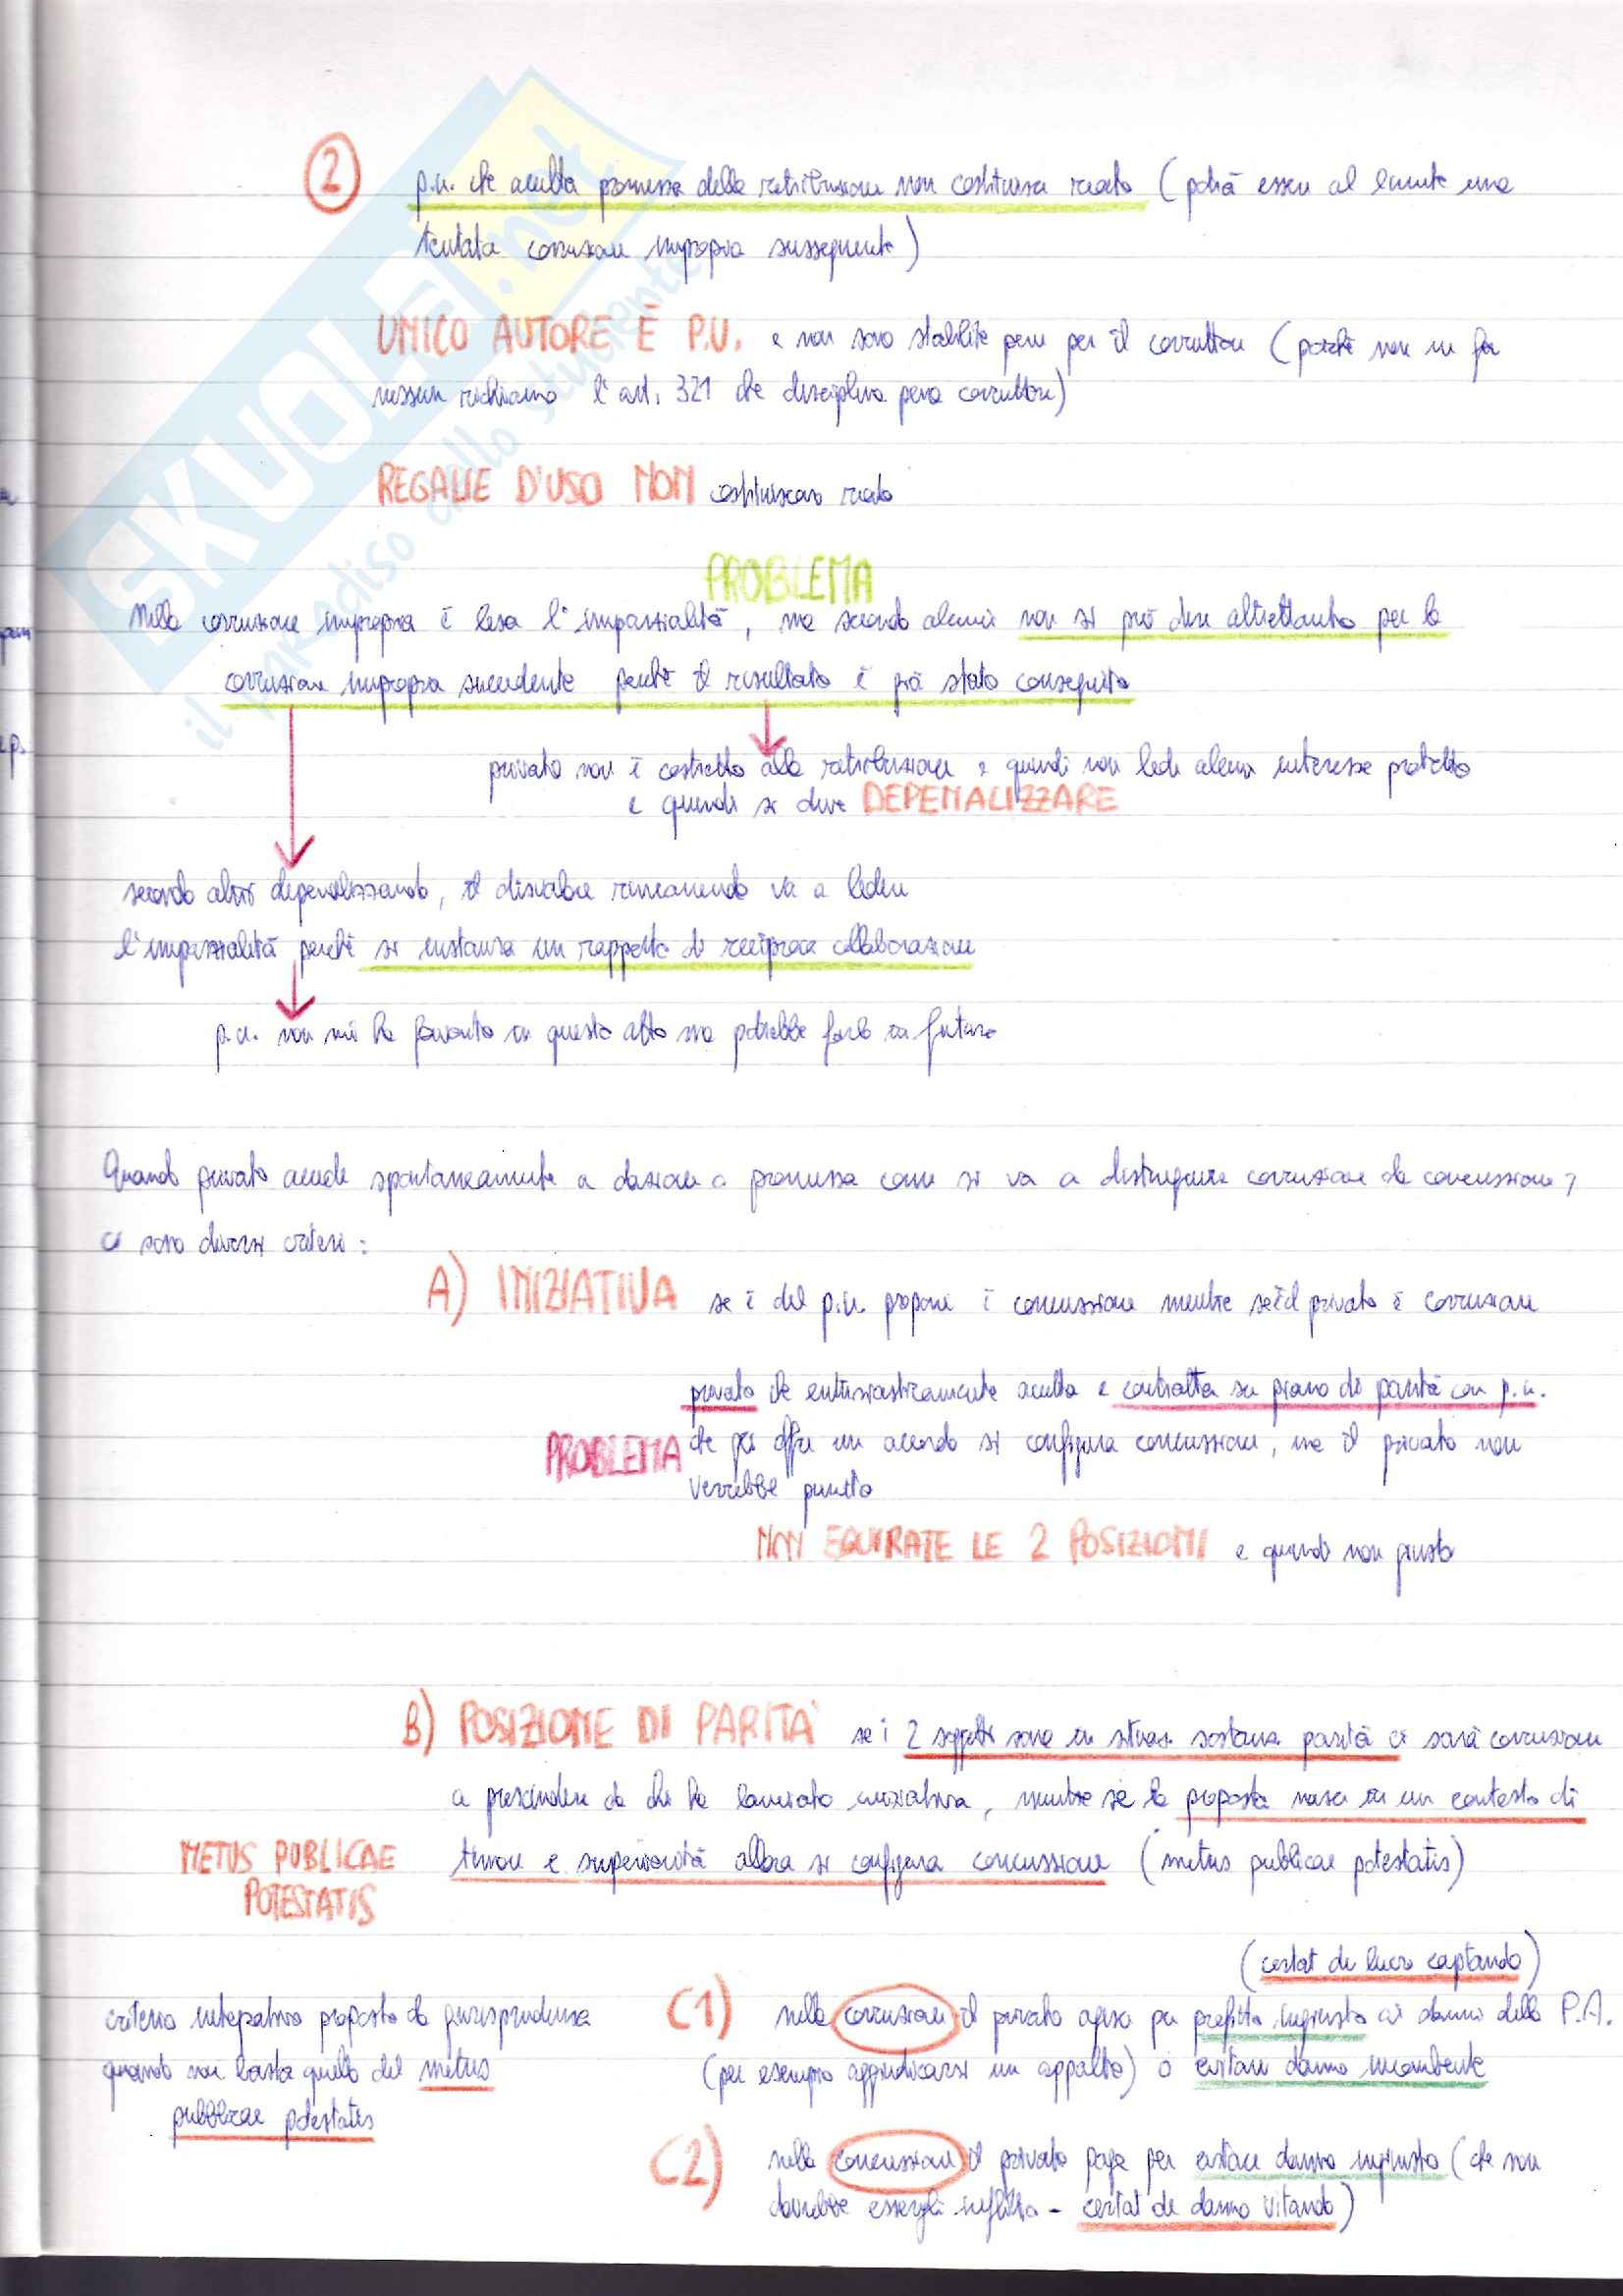 2
p.u. che accetta promessa della retribuzione non costituisce reato (potrà essere al limite una
tentata corruzione impropria susseguente)
UNICO AUTORE È P.U. e non sono stabilite pene per il corruttore (poichè non si fa
nessun richiamo l'art. 321 che disciplina pena corruttore)
REGALIE D'USO NON costituiscono reato
PROBLEMA
Nella corruzione impropria è lesa l'imparzialità, ma secondo alcuni non si può dire altrettanto per la
corruzione impropria succedente perchè il risultato è già stato conseguito
privato non è costretto alla retribuzione e quindi non lede alcun interesse protetto
e quindi si deve DEPENALIZZARE
secondo altri depenalizzando, il disvalore rimanendo va a ledere
l'imparzialità perchè si instaura un rapporto di reciproca collaborazione
p.u. non mi ha favorito in questo atto ma potrebbe farlo in futuro
Quando privato accede spontaneamente a dazione o promessa come si va a distinguere corruzione da concussione?
ci sono diversi criteri:
A) INIZIATIVA se è del p.u. propone è concussione mentre se è del privato è corruzione
privato che entusiasticamente accetta e contratta su piano di parità con p.u.
PROBLEMA che gli offre un accordo si configura concussione, ma il privato non
verrebbe punito
NON EQUIPARATE LE 2 POSIZIONI e quindi non giusto
B) POSIZIONE DI PARITÀ se i 2 soggetti sono in situaz. sostanz. parità ci sarà corruzione
a prescindere da chi ha lanciato iniziativa, mentre se la proposta nasce in un contesto di
METUS PUBLICAE timore e superiorità allora si configura concussione (metus publicae potestatis)
POTESTATIS
(certat de lucro captando)
criterio integrativo proposto da giurisprudenza
quando non basta quello del metus
pubblicae potestatis
C1) nella corruzione il privato agisce per profitto ingiusto ai danni della P.A.
(per esempio aggiudicarsi un appalto) o evitare danno incombente
C2) nella concussione il privato paga per evitare danno ingiusto (che non
dovrebbe essergli inflitto - certat de damno vitando)
SKUOLA.net
il paradiso dello studente